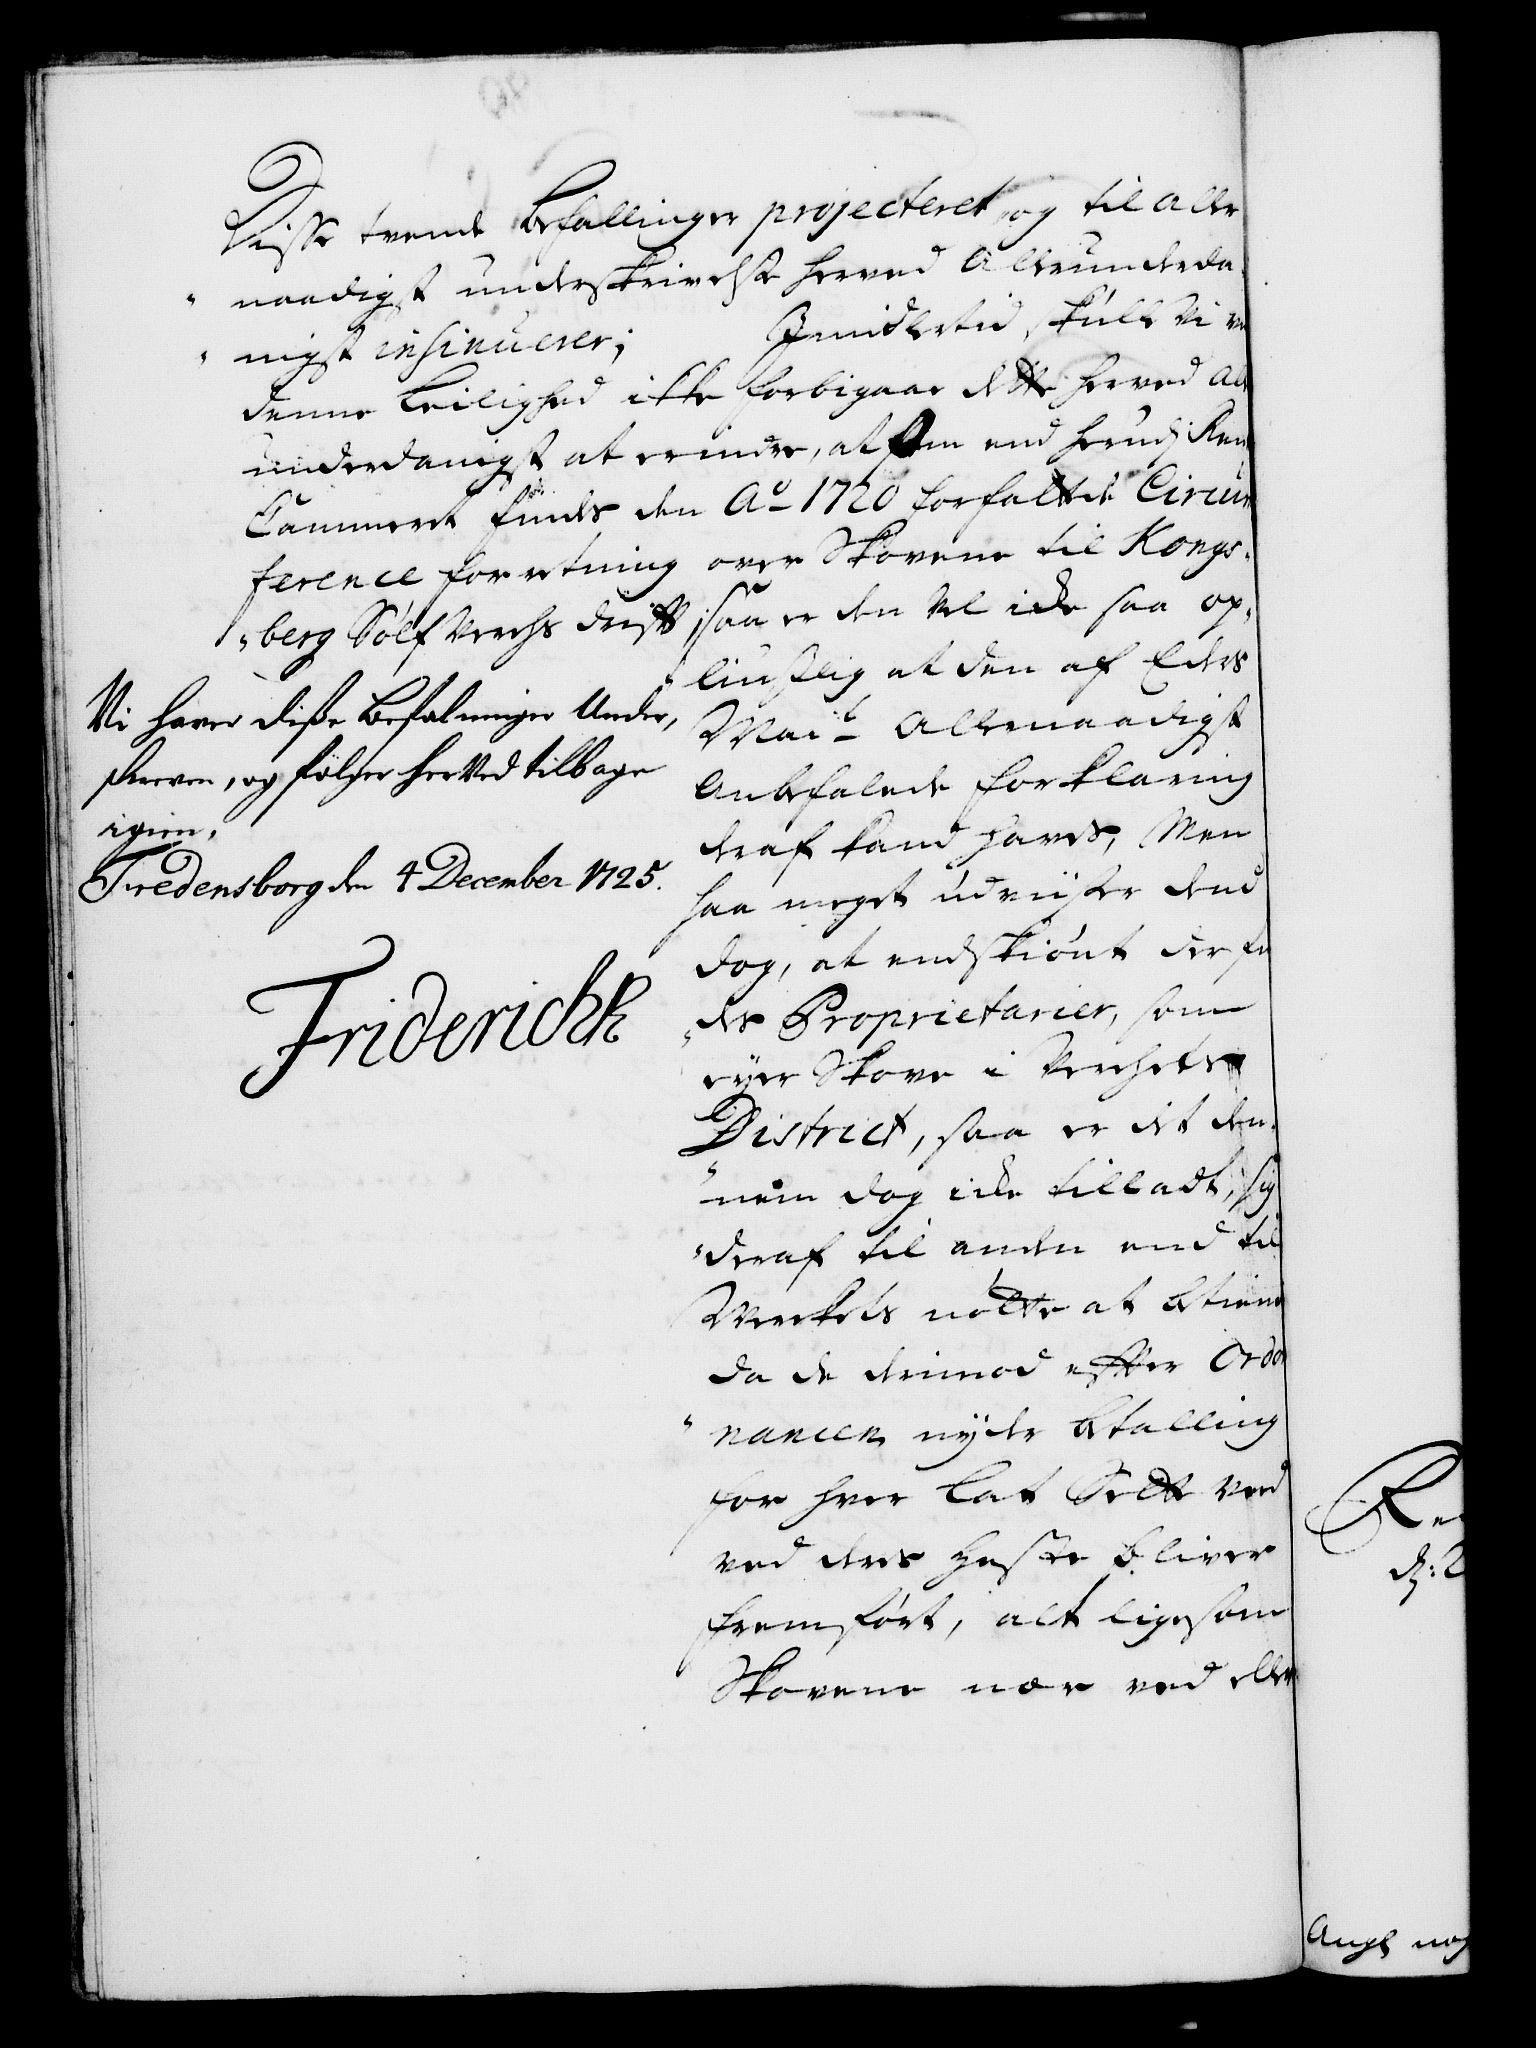 Disse tvende Befallinger projecteret og til aller
naadigst underskrivelse herved Allerunderda„
„nigst insinuerer; Imidlertid skulle Vi ve
denne Leilighed icke forbigaae dette herved All
underdanigst at erindre, at som end herudj Rent
Cammeret findes den Aº 1720 forfattede Circum
ference forretning over Skovene til Kongs„
„berg Sølf Verchs drift, saa er den vel icke saa op„
liuslig at den af Eders
Mait Allernaadigst
Anbefalede forklaring
deraf kand haves, Men
saa meget udviiser dend
dog, at endskiønt der fin
„des Proprietarier, som
eyer Skove i Verchets
District, saa er det den„
„nem dog icke tilladt, sig
„deraf til anden end til
Werkets nøtte at betiene
da de derimod effter Ordo
„nancen nyde betalling
for hver Lat Sette Veed
ved deres Heste bliver
fremført, alt ligesom
Skovene nær ved eller
Vi haver diße Befalninger Under„
skreven, og følger herved tilbage
igien.
Fredensborg den 4 December 1725.
Friderich R
Re
d: 2
Angl nog